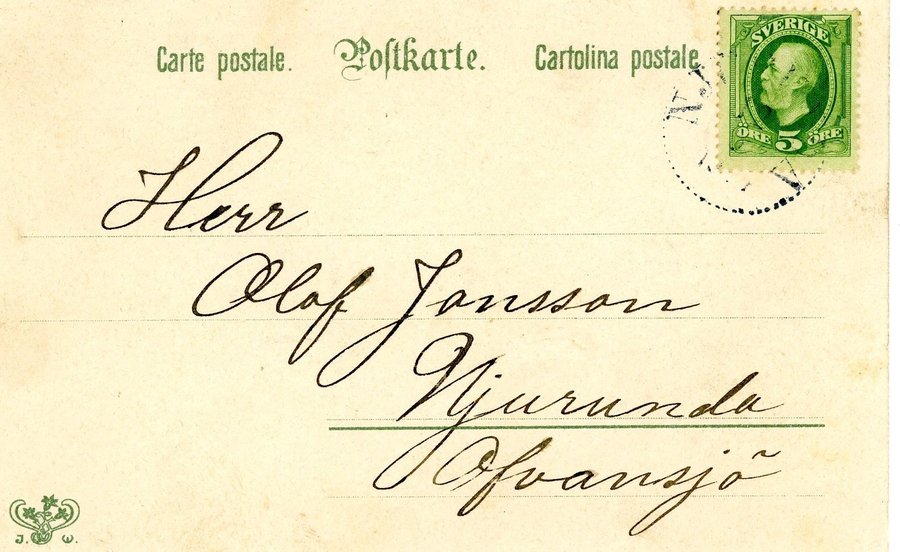 Carte postale. Postkarte. Cartolina postale.
SVERIGE
ÖRE 5 ÖRE
Herr
Olof Jonsson
Njurunda
Ofvansjö
J. W.